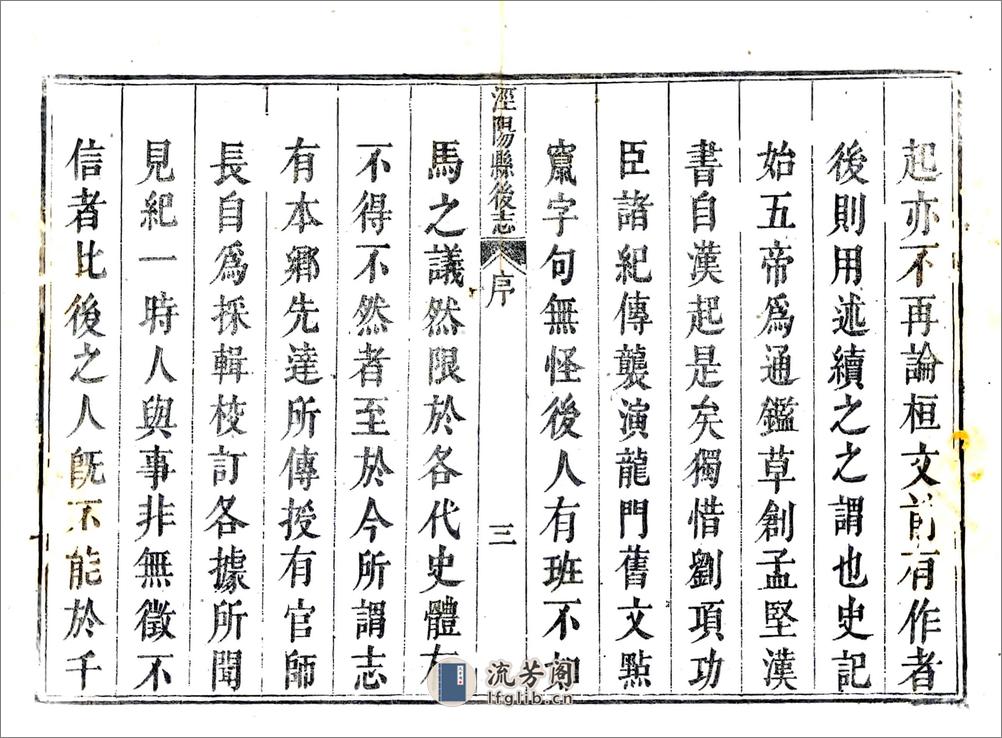 起亦不再論桓文前有作者
後則用述續之之謂也史記
始五帝爲通鑑草創孟堅漢
書自漢起是矣獨惜劉項功
臣諸紀傳襲演龍門舊文點
竄字句無怪後人有班不如
涇陽縣後志 序 三
馬之議然限於各代史體有
不得不然者至於今所謂志
有本鄉先達所傳授有官師
長自爲採輯校訂各據所聞
見紀一時人與事非無徵不
信者比後之人旣不能於千
流芳阁
lfglib.cn